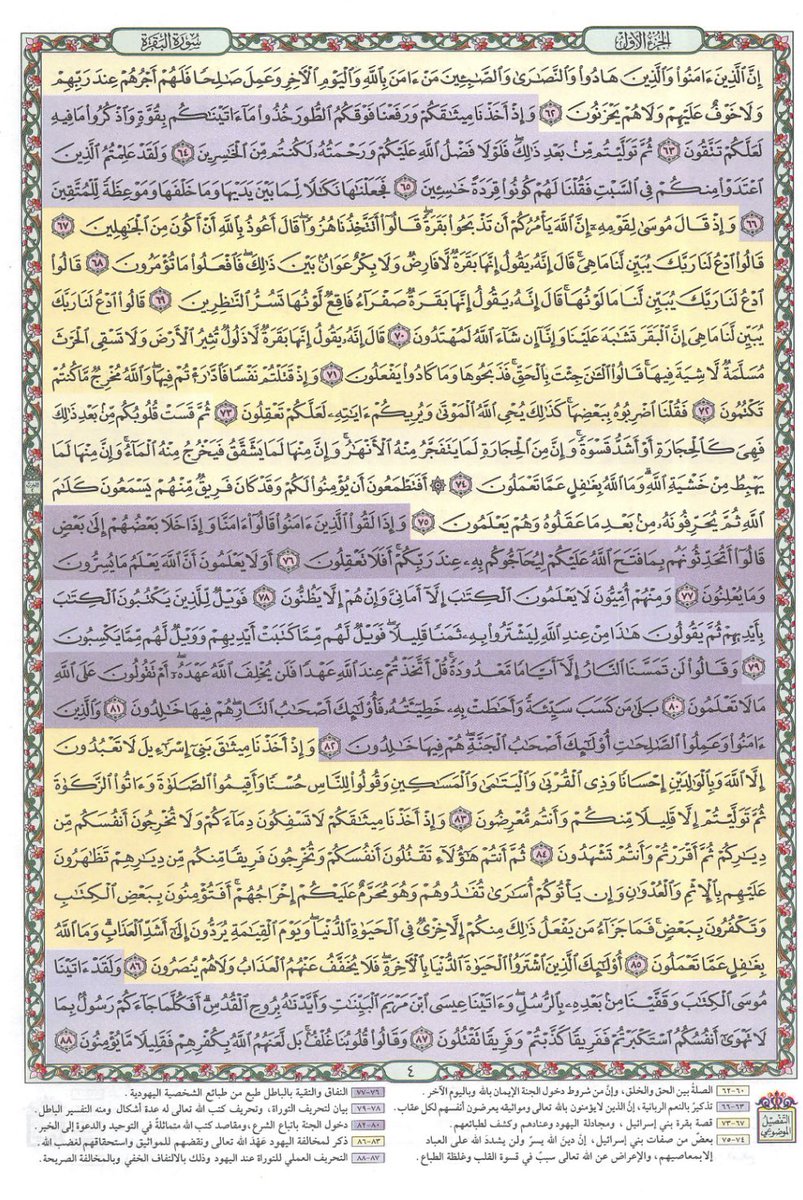 الجزء الأول
سورة البقرة
إِنَّ الَّذِينَ ءَامَنُوا وَالَّذِينَ هَادُوا وَالنَّصَارَىٰ وَالصَّابِئِينَ مَنْ ءَامَنَ بِاللَّهِ وَالْيَوْمِ الْآخِرِ وَعَمِلَ صَالِحًا فَلَهُمْ أَجْرُهُمْ عِندَ رَبِّهِمْ
وَلَا خَوْفٌ عَلَيْهِمْ وَلَا هُمْ يَحْزَنُونَ ٦٢ وَإِذْ أَخَذْنَا مِيثَاقَكُمْ وَرَفَعْنَا فَوْقَكُمُ الطُّورَ خُذُوا مَا ءَاتَيْنَاكُم بِقُوَّةٍ وَاذْكُرُوا مَا فِيهِ
لَعَلَّكُمْ تَتَّقُونَ ٦٣ ثُمَّ تَوَلَّيْتُم مِّنۢ بَعْدِ ذَٰلِكَ فَلَوْلَا فَضْلُ اللَّهِ عَلَيْكُمْ وَرَحْمَتُهُ لَكُنتُم مِّنَ الْخَاسِرِينَ ٦٤ وَلَقَدْ عَلِمْتُمُ الَّذِينَ
اعْتَدَوْا مِنكُمْ فِي السَّبْتِ فَقُلْنَا لَهُمْ كُونُوا قِرَدَةً خَاسِئِينَ ٦٥ فَجَعَلْنَاهَا نَكَالًا لِّمَا بَيْنَ يَدَيْهَا وَمَا خَلْفَهَا وَمَوْعِظَةً لِّلْمُتَّقِينَ
٦٦ وَإِذْ قَالَ مُوسَىٰ لِقَوْمِهِ إِنَّ اللَّهَ يَأْمُرُكُمْ أَن تَذْبَحُوا بَقَرَةً قَالُوا أَتَتَّخِذُنَا هُزُوًا قَالَ أَعُوذُ بِاللَّهِ أَنْ أَكُونَ مِنَ الْجَاهِلِينَ ٦٧
قَالُوا ادْعُ لَنَا رَبَّكَ يُبَيِّن لَّنَا مَا هِيَ قَالَ إِنَّهُ يَقُولُ إِنَّهَا بَقَرَةٌ لَّا فَارِضٌ وَلَا بِكْرٌ عَوَانٌ بَيْنَ ذَٰلِكَ فَافْعَلُوا مَا تُؤْمَرُونَ ٦٨ قَالُوا
ادْعُ لَنَا رَبَّكَ يُبَيِّن لَّنَا مَا لَوْنُهَا قَالَ إِنَّهُ يَقُولُ إِنَّهَا بَقَرَةٌ صَفْرَاءُ فَاقِعٌ لَّوْنُهَا تَسُرُّ النَّاظِرِينَ ٦٩ قَالُوا ادْعُ لَنَا رَبَّكَ
يُبَيِّن لَّنَا مَا هِيَ إِنَّ الْبَقَرَ تَشَابَهَ عَلَيْنَا وَإِنَّا إِن شَاءَ اللَّهُ لَمُهْتَدُونَ ٧٠ قَالَ إِنَّهُ يَقُولُ إِنَّهَا بَقَرَةٌ لَّا ذَلُولٌ تُثِيرُ الْأَرْضَ وَلَا تَسْقِي الْحَرْثَ
مُسَلَّمَةٌ لَّا شِيَةَ فِيهَا قَالُوا الْآنَ جِئْتَ بِالْحَقِّ فَذَبَحُوهَا وَمَا كَادُوا يَفْعَلُونَ ٧١ وَإِذْ قَتَلْتُمْ نَفْسًا فَادَّارَأْتُمْ فِيهَا وَاللَّهُ مُخْرِجٌ مَّا كُنتُمْ
تَكْتُمُونَ ٧٢ فَقُلْنَا اضْرِبُوهُ بِبَعْضِهَا كَذَٰلِكَ يُحْيِي اللَّهُ الْمَوْتَىٰ وَيُرِيكُمْ ءَايَاتِهِ لَعَلَّكُمْ تَعْقِلُونَ ٧٣ ثُمَّ قَسَتْ قُلُوبُكُم مِّنۢ بَعْدِ ذَٰلِكَ
فَهِيَ كَالْحِجَارَةِ أَوْ أَشَدُّ قَسْوَةً وَإِنَّ مِنَ الْحِجَارَةِ لَمَا يَتَفَجَّرُ مِنْهُ الْأَنْهَارُ وَإِنَّ مِنْهَا لَمَا يَشَّقَّقُ فَيَخْرُجُ مِنْهُ الْمَاءُ وَإِنَّ مِنْهَا لَمَا
يَهْبِطُ مِنْ خَشْيَةِ اللَّهِ وَمَا اللَّهُ بِغَافِلٍ عَمَّا تَعْمَلُونَ ٧٤ ۞ أَفَتَطْمَعُونَ أَن يُؤْمِنُوا لَكُمْ وَقَدْ كَانَ فَرِيقٌ مِّنْهُمْ يَسْمَعُونَ كَلَامَ
اللَّهِ ثُمَّ يُحَرِّفُونَهُ مِنۢ بَعْدِ مَا عَقَلُوهُ وَهُمْ يَعْلَمُونَ ٧٥ وَإِذَا لَقُوا الَّذِينَ ءَامَنُوا قَالُوا ءَامَنَّا وَإِذَا خَلَا بَعْضُهُمْ إِلَىٰ بَعْضٍ
قَالُوا أَتُحَدِّثُونَهُم بِمَا فَتَحَ اللَّهُ عَلَيْكُمْ لِيُحَاجُّوكُم بِهِ عِندَ رَبِّكُمْ أَفَلَا تَعْقِلُونَ ٧٦ أَوَلَا يَعْلَمُونَ أَنَّ اللَّهَ يَعْلَمُ مَا يُسِرُّونَ
وَمَا يُعْلِنُونَ ٧٧ وَمِنْهُمْ أُمِّيُّونَ لَا يَعْلَمُونَ الْكِتَابَ إِلَّا أَمَانِيَّ وَإِنْ هُمْ إِلَّا يَظُنُّونَ ٧٨ فَوَيْلٌ لِّلَّذِينَ يَكْتُبُونَ الْكِتَابَ
بِأَيْدِيهِمْ ثُمَّ يَقُولُونَ هَٰذَا مِنْ عِندِ اللَّهِ لِيَشْتَرُوا بِهِ ثَمَنًا قَلِيلًا فَوَيْلٌ لَّهُم مِّمَّا كَتَبَتْ أَيْدِيهِمْ وَوَيْلٌ لَّهُم مِّمَّا يَكْسِبُونَ
٧٩ وَقَالُوا لَن تَمَسَّنَا النَّارُ إِلَّا أَيَّامًا مَّعْدُودَةً قُلْ أَتَّخَذْتُمْ عِندَ اللَّهِ عَهْدًا فَلَن يُخْلِفَ اللَّهُ عَهْدَهُ أَمْ تَقُولُونَ عَلَى اللَّهِ
مَا لَا تَعْلَمُونَ ٨٠ بَلَىٰ مَن كَسَبَ سَيِّئَةً وَأَحَاطَتْ بِهِ خَطِيئَتُهُ فَأُولَٰئِكَ أَصْحَابُ النَّارِ هُمْ فِيهَا خَالِدُونَ ٨١ وَالَّذِينَ
ءَامَنُوا وَعَمِلُوا الصَّالِحَاتِ أُولَٰئِكَ أَصْحَابُ الْجَنَّةِ هُمْ فِيهَا خَالِدُونَ ٨٢ وَإِذْ أَخَذْنَا مِيثَاقَ بَنِي إِسْرَائِيلَ لَا تَعْبُدُونَ
إِلَّا اللَّهَ وَبِالْوَالِدَيْنِ إِحْسَانًا وَذِي الْقُرْبَىٰ وَالْيَتَامَىٰ وَالْمَسَاكِينِ وَقُولُوا لِلنَّاسِ حُسْنًا وَأَقِيمُوا الصَّلَاةَ وَءَاتُوا الزَّكَاةَ
ثُمَّ تَوَلَّيْتُمْ إِلَّا قَلِيلًا مِّنكُمْ وَأَنتُم مُّعْرِضُونَ ٨٣ وَإِذْ أَخَذْنَا مِيثَاقَكُمْ لَا تَسْفِكُونَ دِمَاءَكُمْ وَلَا تُخْرِجُونَ أَنفُسَكُم مِّن
دِيَارِكُمْ ثُمَّ أَقْرَرْتُمْ وَأَنتُمْ تَشْهَدُونَ ٨٤ ثُمَّ أَنتُمْ هَٰؤُلَاءِ تَقْتُلُونَ أَنفُسَكُمْ وَتُخْرِجُونَ فَرِيقًا مِّنكُم مِّن دِيَارِهِمْ تَظَاهَرُونَ
عَلَيْهِم بِالْإِثْمِ وَالْعُدْوَانِ وَإِن يَأْتُوكُمْ أُسَارَىٰ تُفَادُوهُمْ وَهُوَ مُحَرَّمٌ عَلَيْكُمْ إِخْرَاجُهُمْ أَفَتُؤْمِنُونَ بِبَعْضِ الْكِتَابِ
وَتَكْفُرُونَ بِبَعْضٍ فَمَا جَزَاءُ مَن يَفْعَلُ ذَٰلِكَ مِنكُمْ إِلَّا خِزْيٌ فِي الْحَيَاةِ الدُّنْيَا وَيَوْمَ الْقِيَامَةِ يُرَدُّونَ إِلَىٰ أَشَدِّ الْعَذَابِ وَمَا اللَّهُ
بِغَافِلٍ عَمَّا تَعْمَلُونَ ٨٥ أُولَٰئِكَ الَّذِينَ اشْتَرَوُا الْحَيَاةَ الدُّنْيَا بِالْآخِرَةِ فَلَا يُخَفَّفُ عَنْهُمُ الْعَذَابُ وَلَا هُمْ يُنصَرُونَ ٨٦ وَلَقَدْ ءَاتَيْنَا
مُوسَى الْكِتَابَ وَقَفَّيْنَا مِنۢ بَعْدِهِ بِالرُّسُلِ وَءَاتَيْنَا عِيسَى ابْنَ مَرْيَمَ الْبَيِّنَاتِ وَأَيَّدْنَاهُ بِرُوحِ الْقُدُسِ أَفَكُلَّمَا جَاءَكُمْ رَسُولٌ بِمَا
لَا تَهْوَىٰ أَنفُسُكُمُ اسْتَكْبَرْتُمْ فَفَرِيقًا كَذَّبْتُمْ وَفَرِيقًا تَقْتُلُونَ ٨٧ وَقَالُوا قُلُوبُنَا غُلْفٌ بَل لَّعَنَهُمُ اللَّهُ بِكُفْرِهِمْ فَقَلِيلًا مَّا يُؤْمِنُونَ ٨٨
٤
التفصيل الموضوعي
٦٠-٦٢ الصلة بين الحق والخلق، وإن من شروط دخول الجنة الإيمان بالله وباليوم الآخر.
٦٣-٦٦ تذكير بالنعم الربانية، إن الذين لا يؤمنون بالله تعالى ومواثيقه يعرضون أنفسهم لكل عقاب.
٦٧-٧٣ قصة بقرة بني إسرائيل، ومجادلة اليهود وعنادهم وكشف لطبائعهم.
٧٤-٧٥ بعض من صفات بني إسرائيل، إن الدين يسر ولن يشدد الله على العباد
إلا بمعاصيهم، والإعراض عن الله تعالى سبب في قسوة القلب وغلظة الطباع.
٧٦-٧٧ النفاق والتقية بالباطل طبع من طبائع الشخصية اليهودية.
٧٨-٧٩ بيان لتحريف التوراة، وتحريف كتب الله تعالى له عدة أشكال ومنه التفسير الباطل.
٨٠-٨٢ دخول الجنة باتباع الشرع، ومقاصد كتب الله متماثلة في التوحيد والدعوة إلى الخير.
٨٣-٨٦ ذكر لمخالفة اليهود عهد الله تعالى ونقضهم للمواثيق واستحقاقهم لغضب الله.
٨٧-٨٨ التحريف العملي للتوراة عند اليهود وذلك بالالتفاف الخفي وبالمخالفة الصريحة.